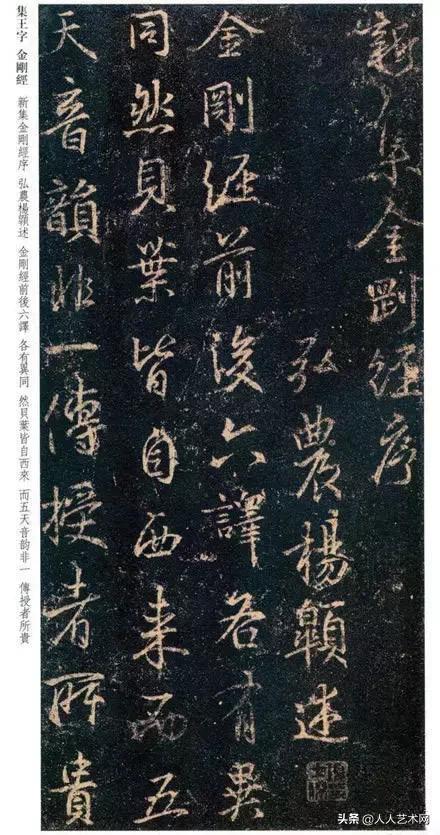 新集金剛經序
弘農楊顗述
金剛經前後六譯各有異
同然貝葉皆自西來而五
天音韻非一傳授者所貴
集王字 金剛經 新集金剛經序 弘農楊顗述 金剛經前後六譯 各有異同 然貝葉皆自西來 而五天音韵非一 傳授者所貴
头条 @人人艺术网